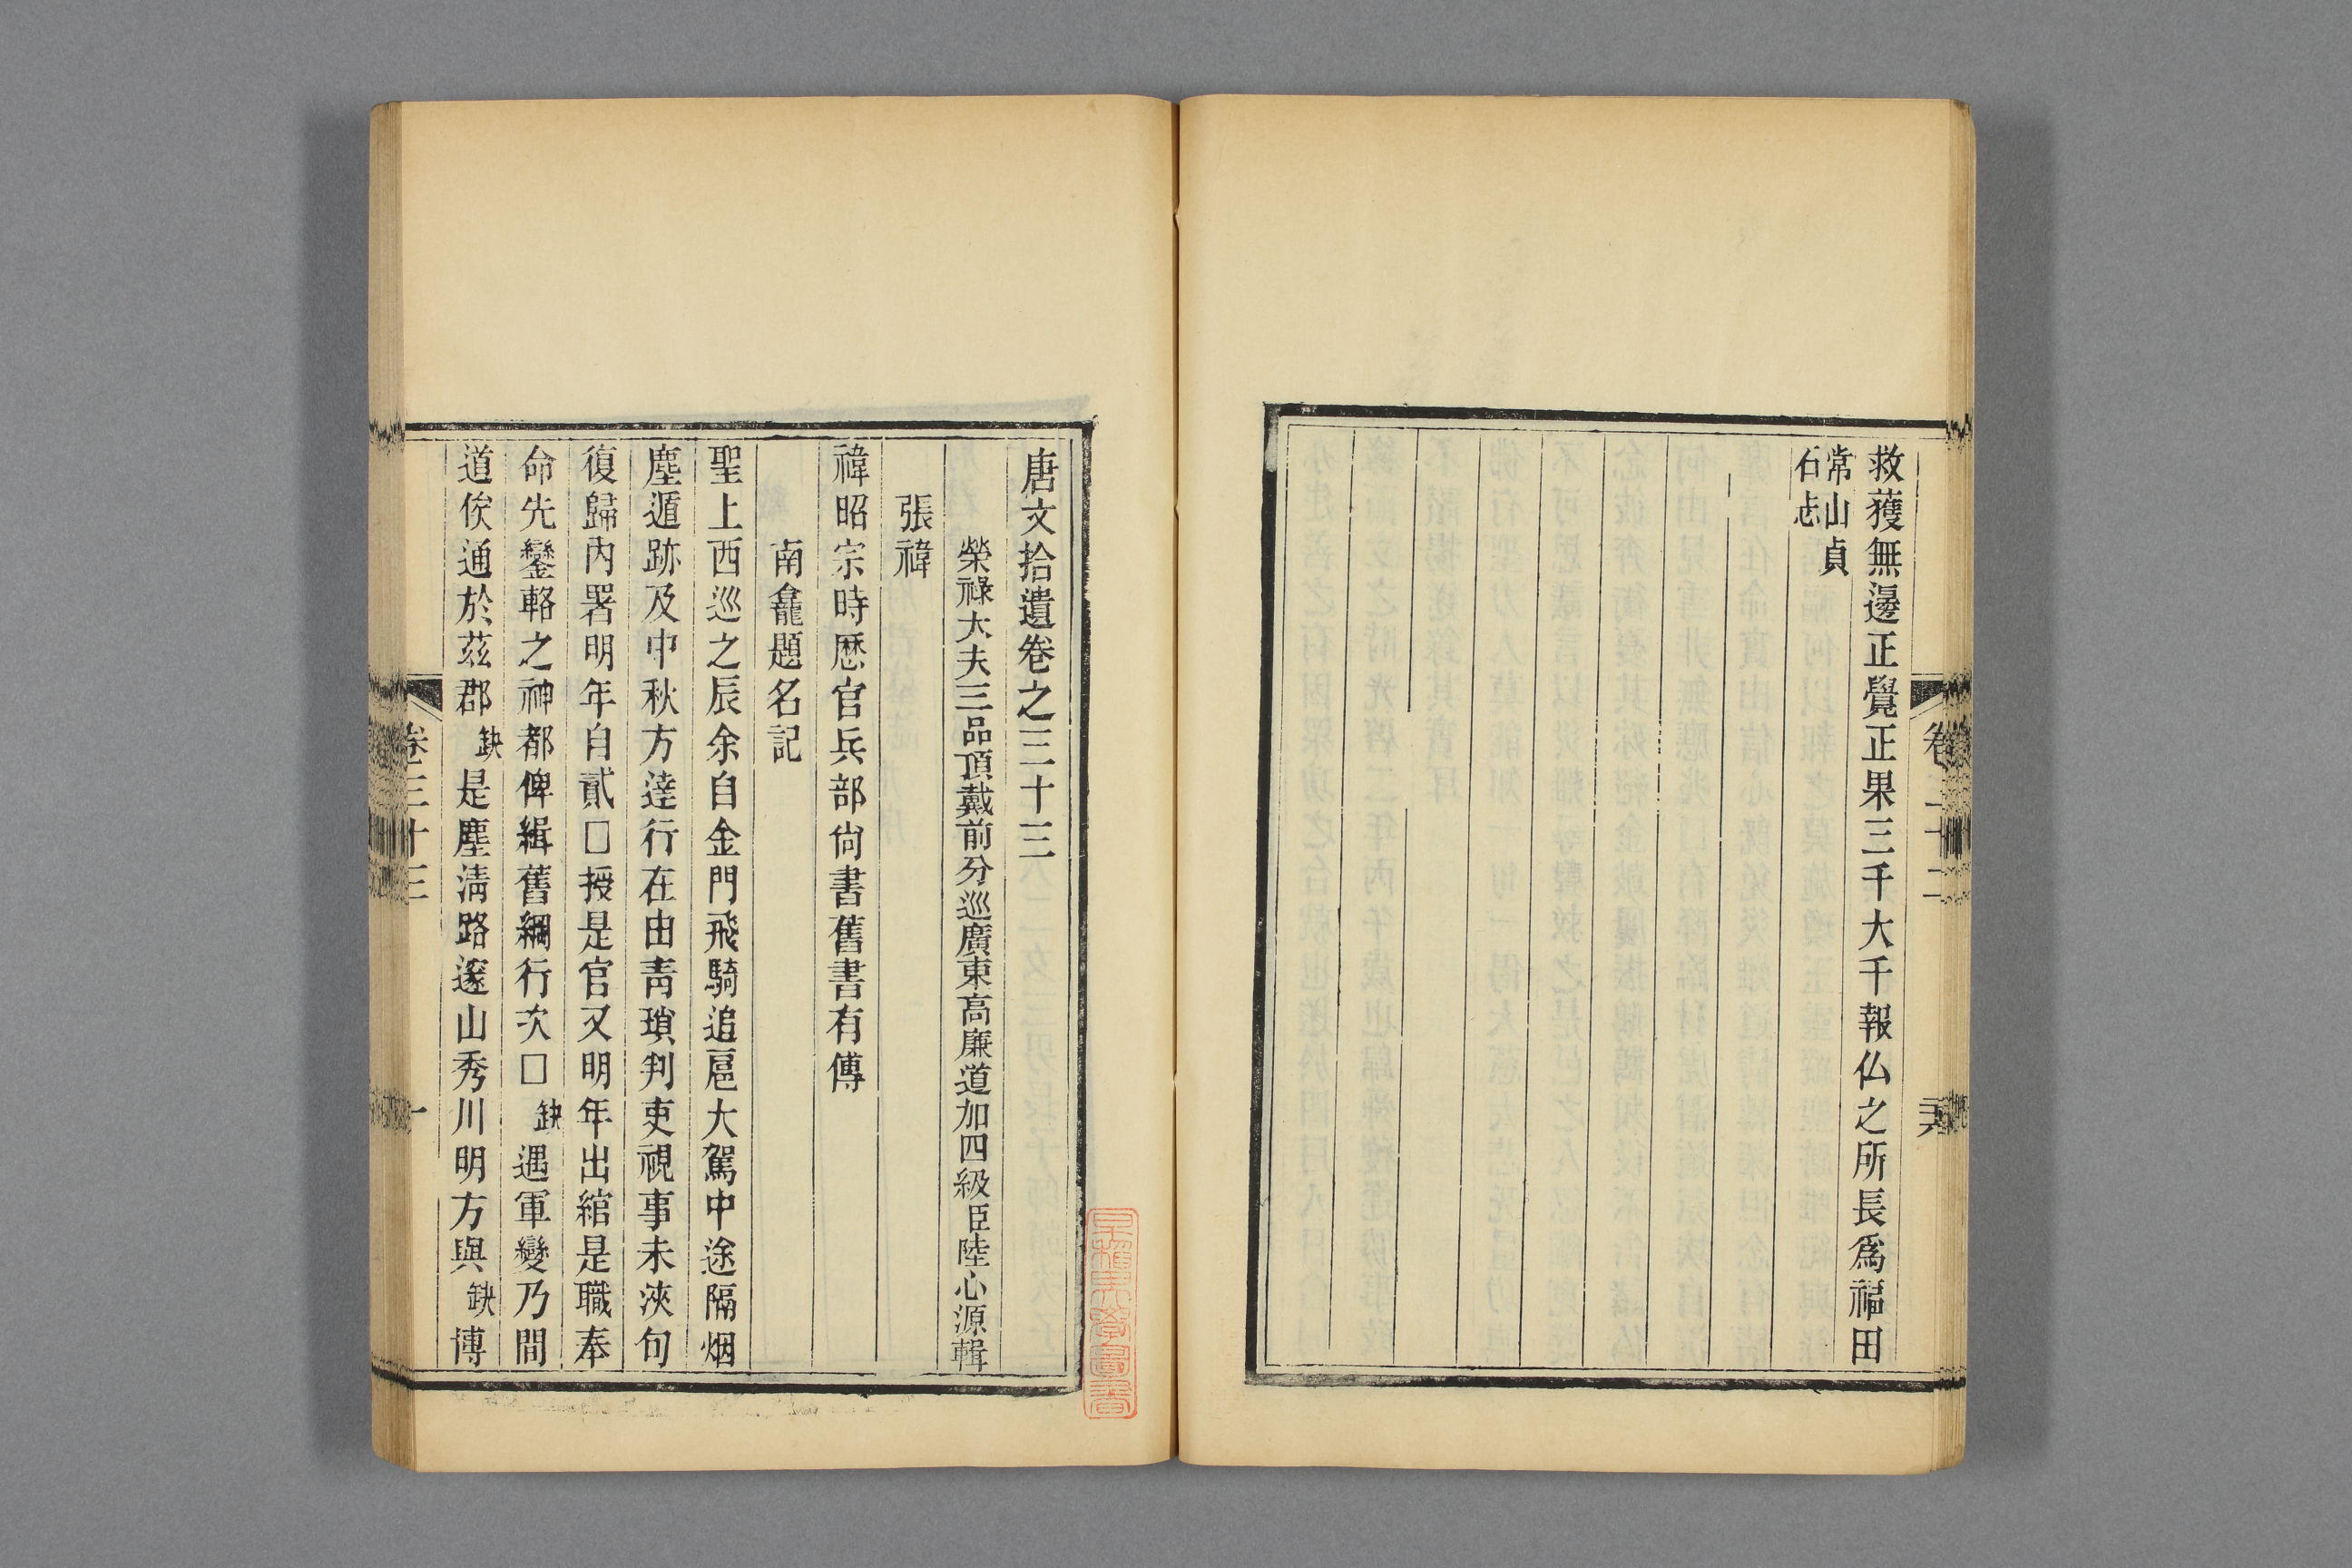 救獲無邊正覺正果三千大千報仏之所長爲福田
常山貞
石志
卷三十二
唐文拾遺卷之三十三
榮祿大夫三品頂戴前分巡廣東高廉道加四級臣陸心源輯
張禕
禕昭宗時歷官兵部尙書舊書有傳
南龕題名記
聖上西巡之辰余自金門飛騎追扈大駕中途隔烟
塵遁跡及中秋方達行在由靑瑣判吏視事未浹旬
復歸內署明年自貳□授是官又明年出綰是職奉
命先鑾輅之神都俾緝舊綱行次□缺遇軍變乃間
道俟通於茲郡缺是塵淸路邃山秀川明方與缺博
卷三十三
一